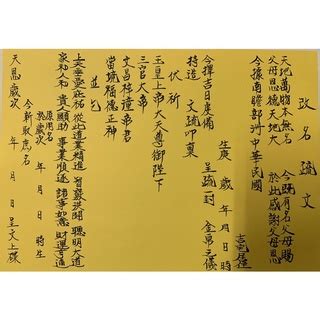 改名疏文
天地萬物本無名 今既有名父母賜
父母恩德天地大 於此感謝父母恩
今據南瞻部洲中華民國
吉宅居住
生庚 歲 年 月 日 時
今擇吉日虔備 呈疏一封 金帛之儀
持造 文疏叩稟
伏祈
玉皇上帝大天尊御陛下
三官大帝
文昌梓潼帝君
當境福德正神
並乞
上天垂憂庇祐 從此道業精進 智藏洪開 聰明大道
家和人和 貴人顯助 事業順遂 諸事如意 財運亨通
原用名
乳歲次 年 月 日 時生
今新取應名
天恩歲次 年 月 日 呈文上疏